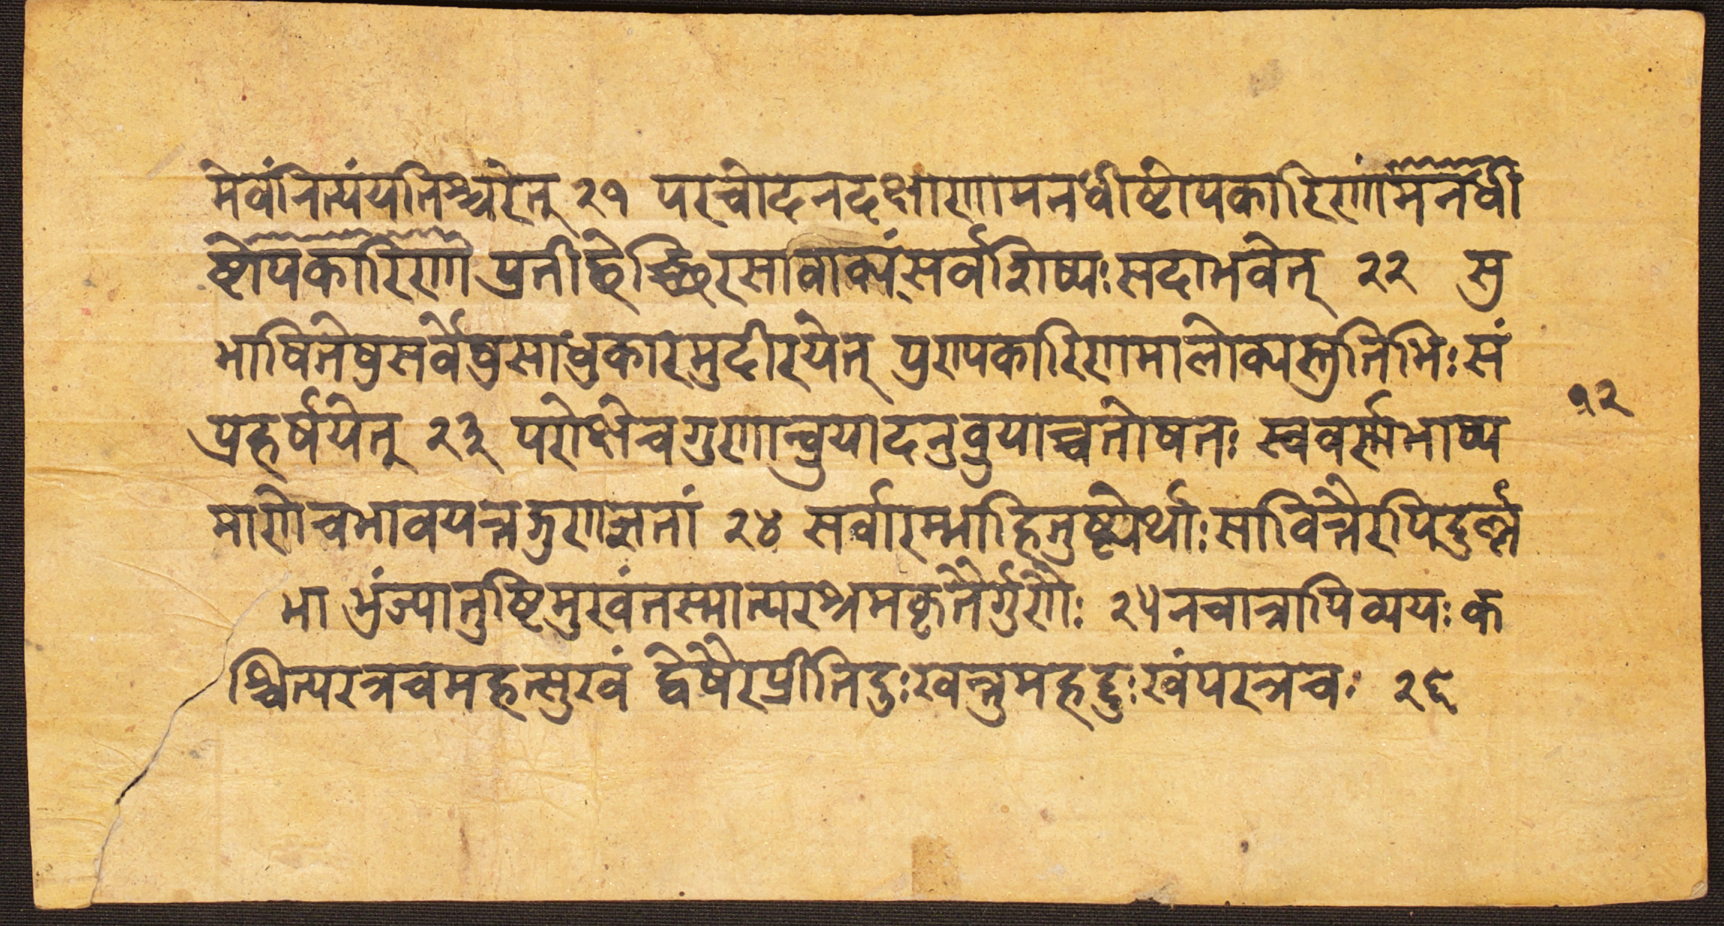 मेवंनित्यंयतिश्चरेत् २१ परचोदनदक्षाणामनधीष्टोपकारिणांमनधी
ष्टोपकारिणां प्रतीछेच्छिरसावाक्यंसर्वशिष्यःसदाभवेत् २२ सु
भाषितेषुसर्वेषुसाधुकारमुदीरयेत् पुण्यकारिणमालोक्यस्तुतिभिःसं
प्रहर्षयेत् २३ परोक्षेचगुणान्ब्रुयादनुब्रुयाच्चतोषतः स्ववर्णेभाष्य
माणेचभावयत्तद्गुणज्ञतां २४ सर्वारम्भाहितुष्ट्येर्थाःसावित्तैरपिदुर्ल्ल
भा भुंज्यातुष्टिसुखंतस्मात्परश्रमकृतैर्गुणैः २५नचात्रापिव्ययःक
श्चित्परत्रचमहत्सुखं द्वेषैरप्रीतिदुःखन्तुमहद्दुःखंपरत्रच २६
१२